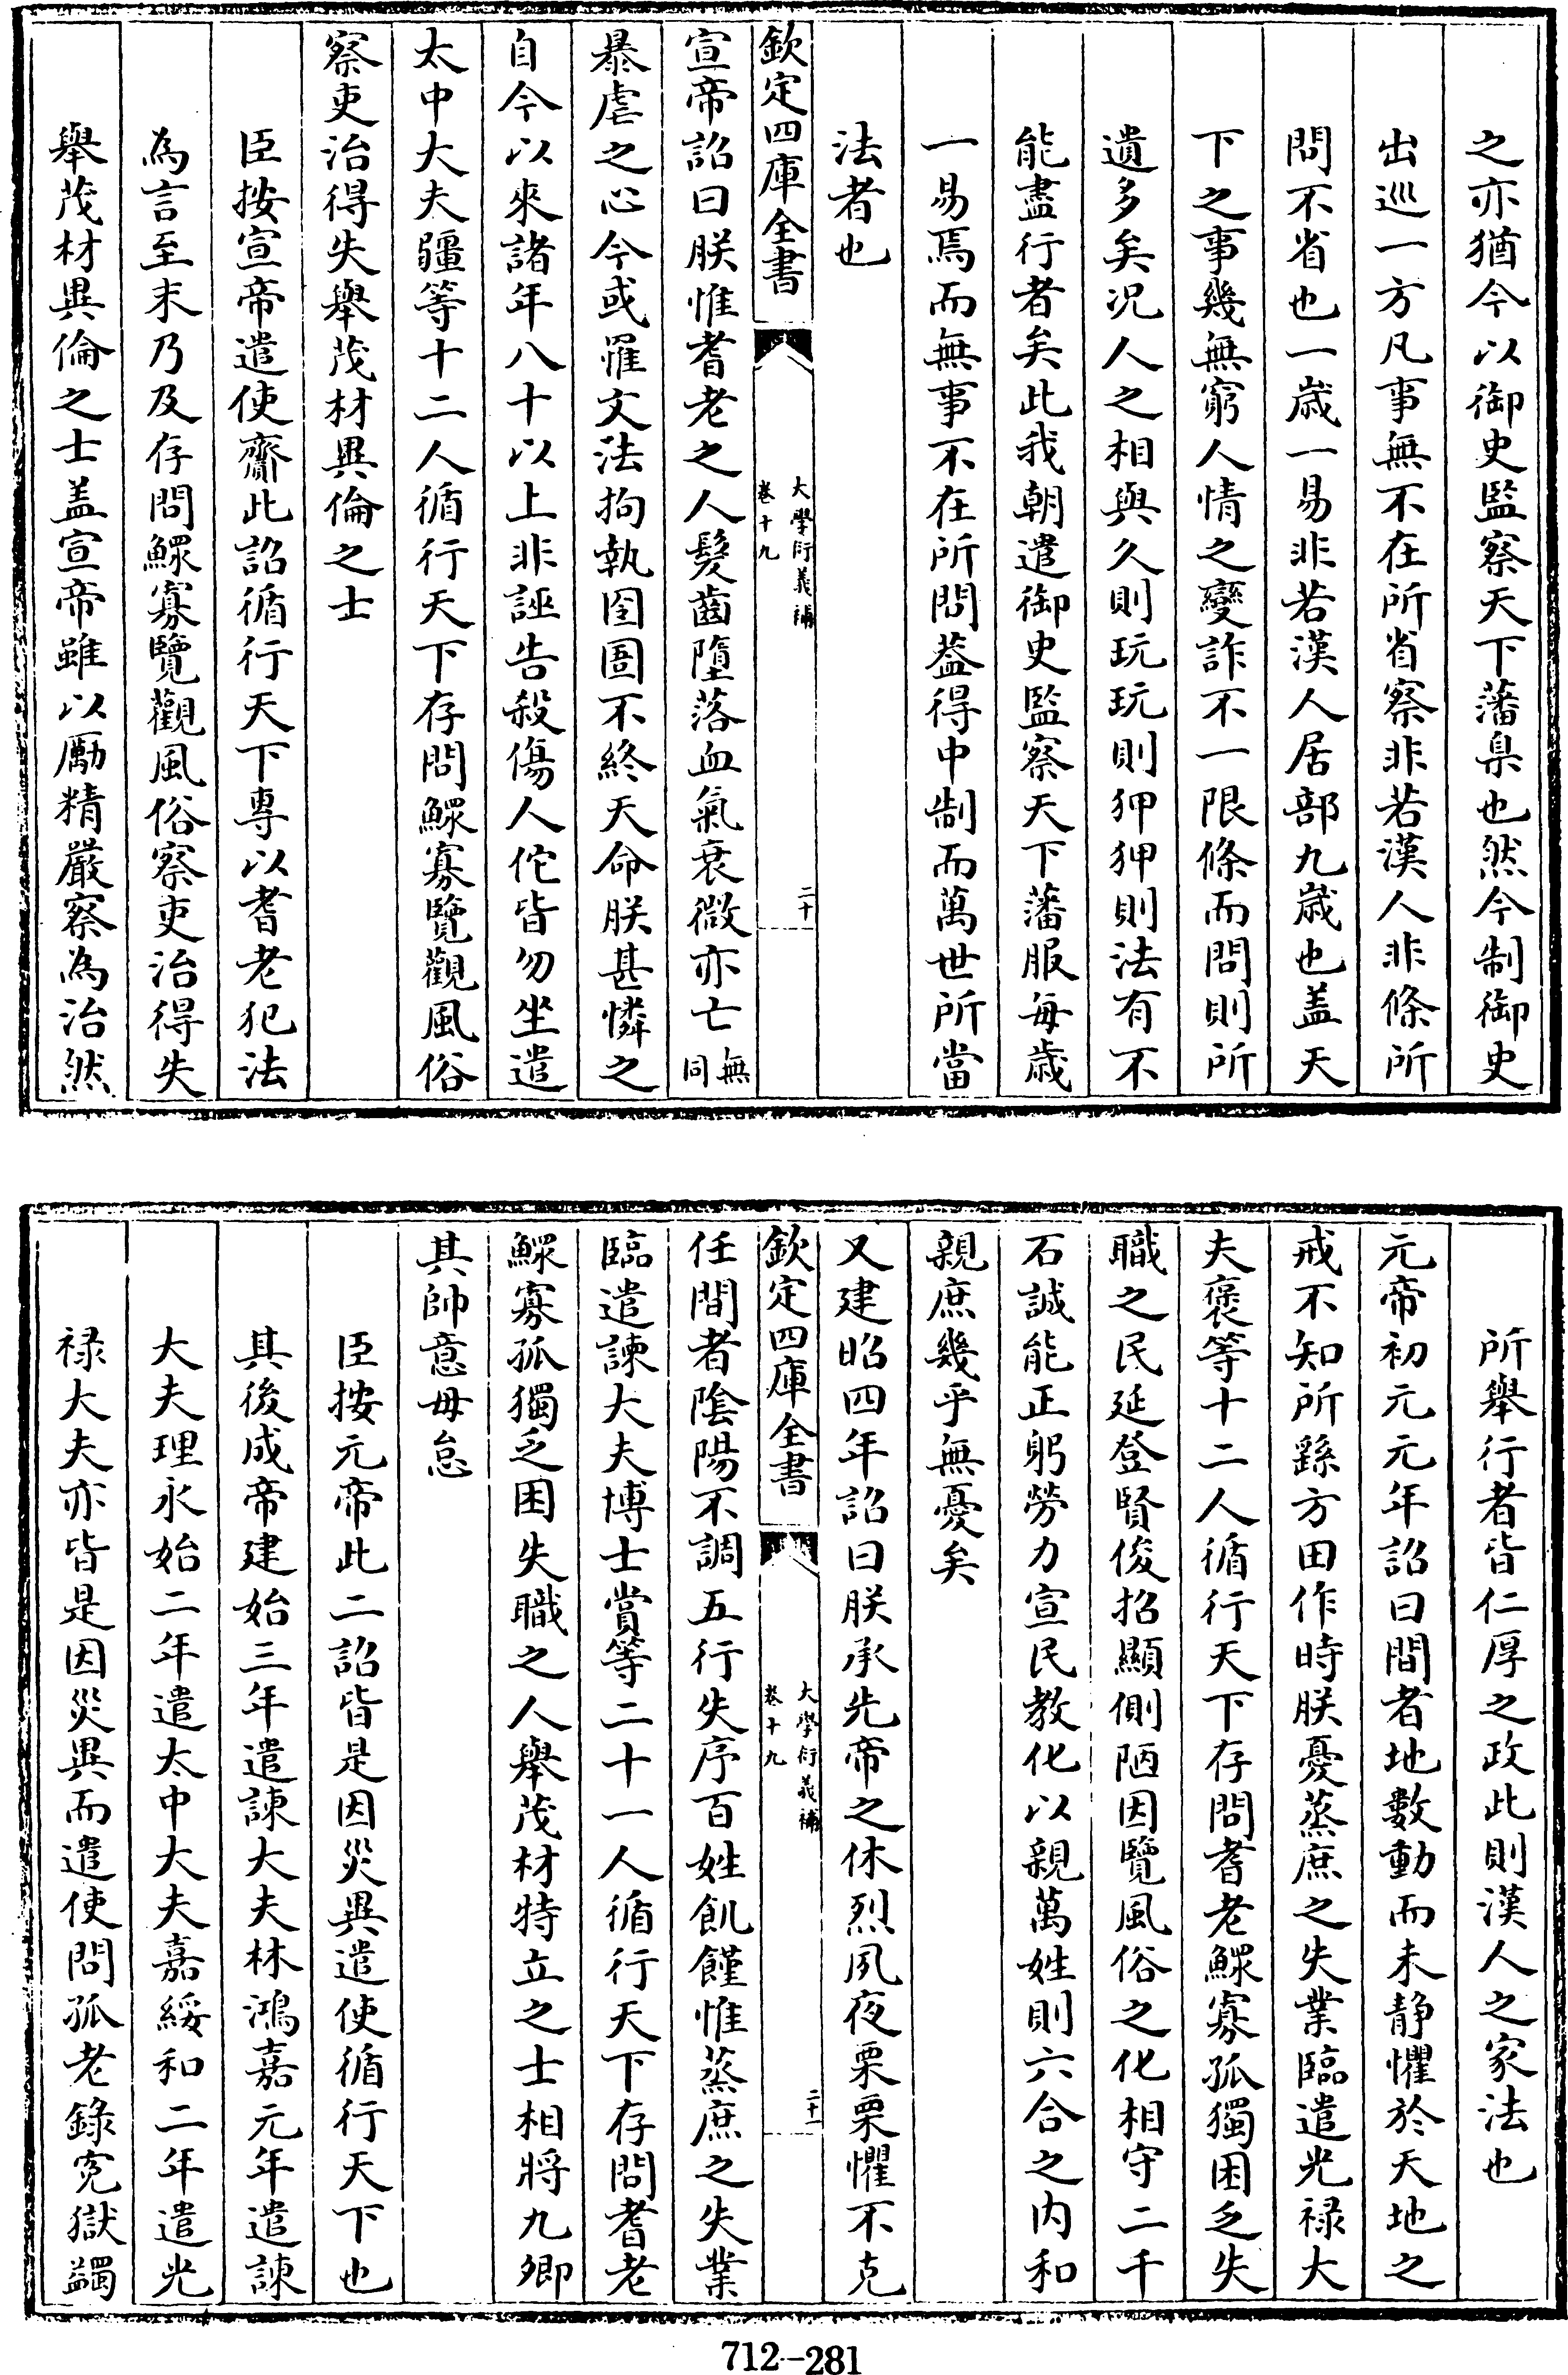 之亦猶今以御史監察天下藩臬也然今制御史
出巡一方凡事無不在所省察非若漢人非條所
問不省也一歳一易非若漢人居部九歳也盖天
下之事幾無窮人情之變詐不一限條而問則所
遺多矣况人之相與久則玩玩則狎狎則法有不
能盡行者矣此我朝遣御史監察天下藩服每歳
一易焉而無事不在所問葢得中制而萬世所當
法者也
欽定四庫全書
大學衍義補
卷十九
二十
宣帝詔曰朕惟耆老之人髮齒墮落血氣衰微亦亡無同
暴虐之心今或罹文法拘執囹圄不終天命朕甚憐之
自今以來諸年八十以上非誣告殺傷人佗皆勿坐遣
太中大夫疆等十二人循行天下存問鰥寡覽觀風俗
察吏治得失舉茂材異倫之士
臣按宣帝遣使齎此詔循行天下專以耆老犯法
為言至末乃及存問鰥寡覽觀風俗察吏治得失
舉茂材異倫之士盖宣帝雖以勵精嚴察為治然
所舉行者皆仁厚之政此則漢人之家法也
元帝初元元年詔曰間者地數動而未静懼於天地之
戒不知所繇方田作時朕憂蒸庶之失業臨遣光禄大
夫褒等十二人循行天下存問耆老鰥寡孤獨困乏失
職之民延登賢俊招顯側陋因覽風俗之化相守二千
石誠能正躬勞力宣民教化以親萬姓則六合之内和
親庶幾乎無憂矣
又建昭四年詔曰朕承先帝之休烈夙夜栗栗懼不克
欽定四庫全書
大學衍義補
卷十九
二十一
任間者陰陽不調五行失序百姓飢饉惟蒸庶之失業
臨遣諫大夫博士賞等二十一人循行天下存問耆老
鰥寡孤獨乏困失職之人舉茂材特立之士相將九卿
其帥意毋怠
臣按元帝此二詔皆是因災異遣使循行天下也
其後成帝建始三年遣諫大夫林鴻嘉元年遣諫
大夫理永始二年遣太中大夫嘉綏和二年遣光
禄大夫亦皆是因災異而遣使問孤老錄寃獄蠲
712-281